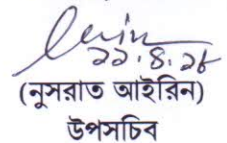 ২২.৪.২৮
(নুসরাত আইরিন)
উপসচিব